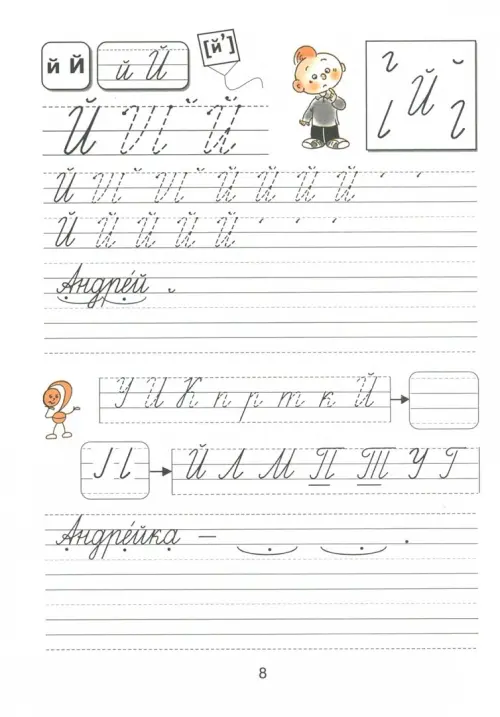 й Й
й Й
[й']
Й
Й И И Й Й Й Й Й
Й Й Й Й Й Й
Андре́й .
У И К п р т к Й
Й Л М П Т У Г
Андре́йка — .
8